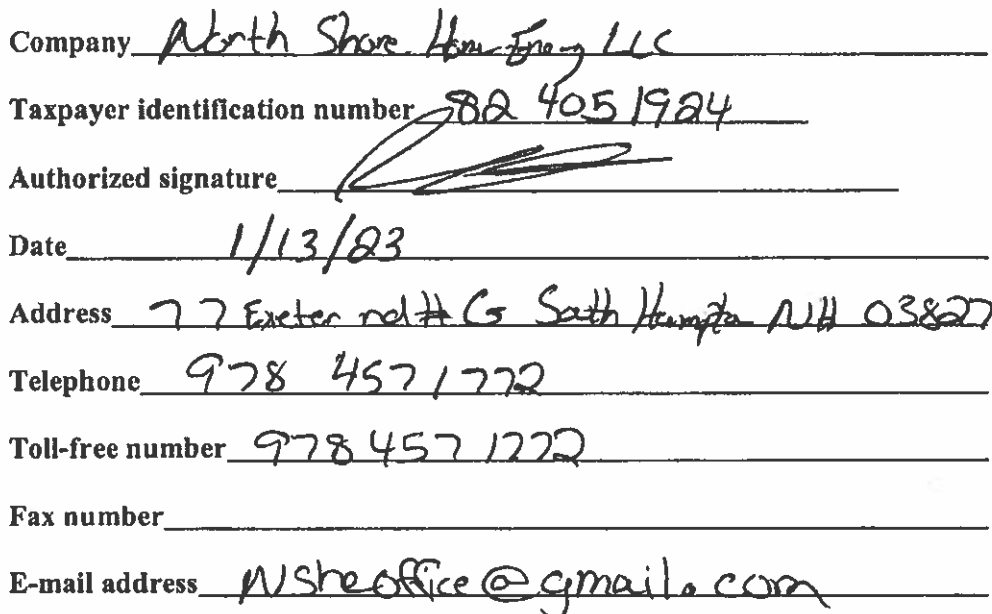 Company North Shore Home Energy LLC
Taxpayer identification number 82 4051924
Authorized signature
Date 1/13/23
Address 77 Exeter rd # G South Hampton NH 03827
Telephone 978 457 1772
Toll-free number 978 457 1772
Fax number
E-mail address NSheoffice@gmail.com